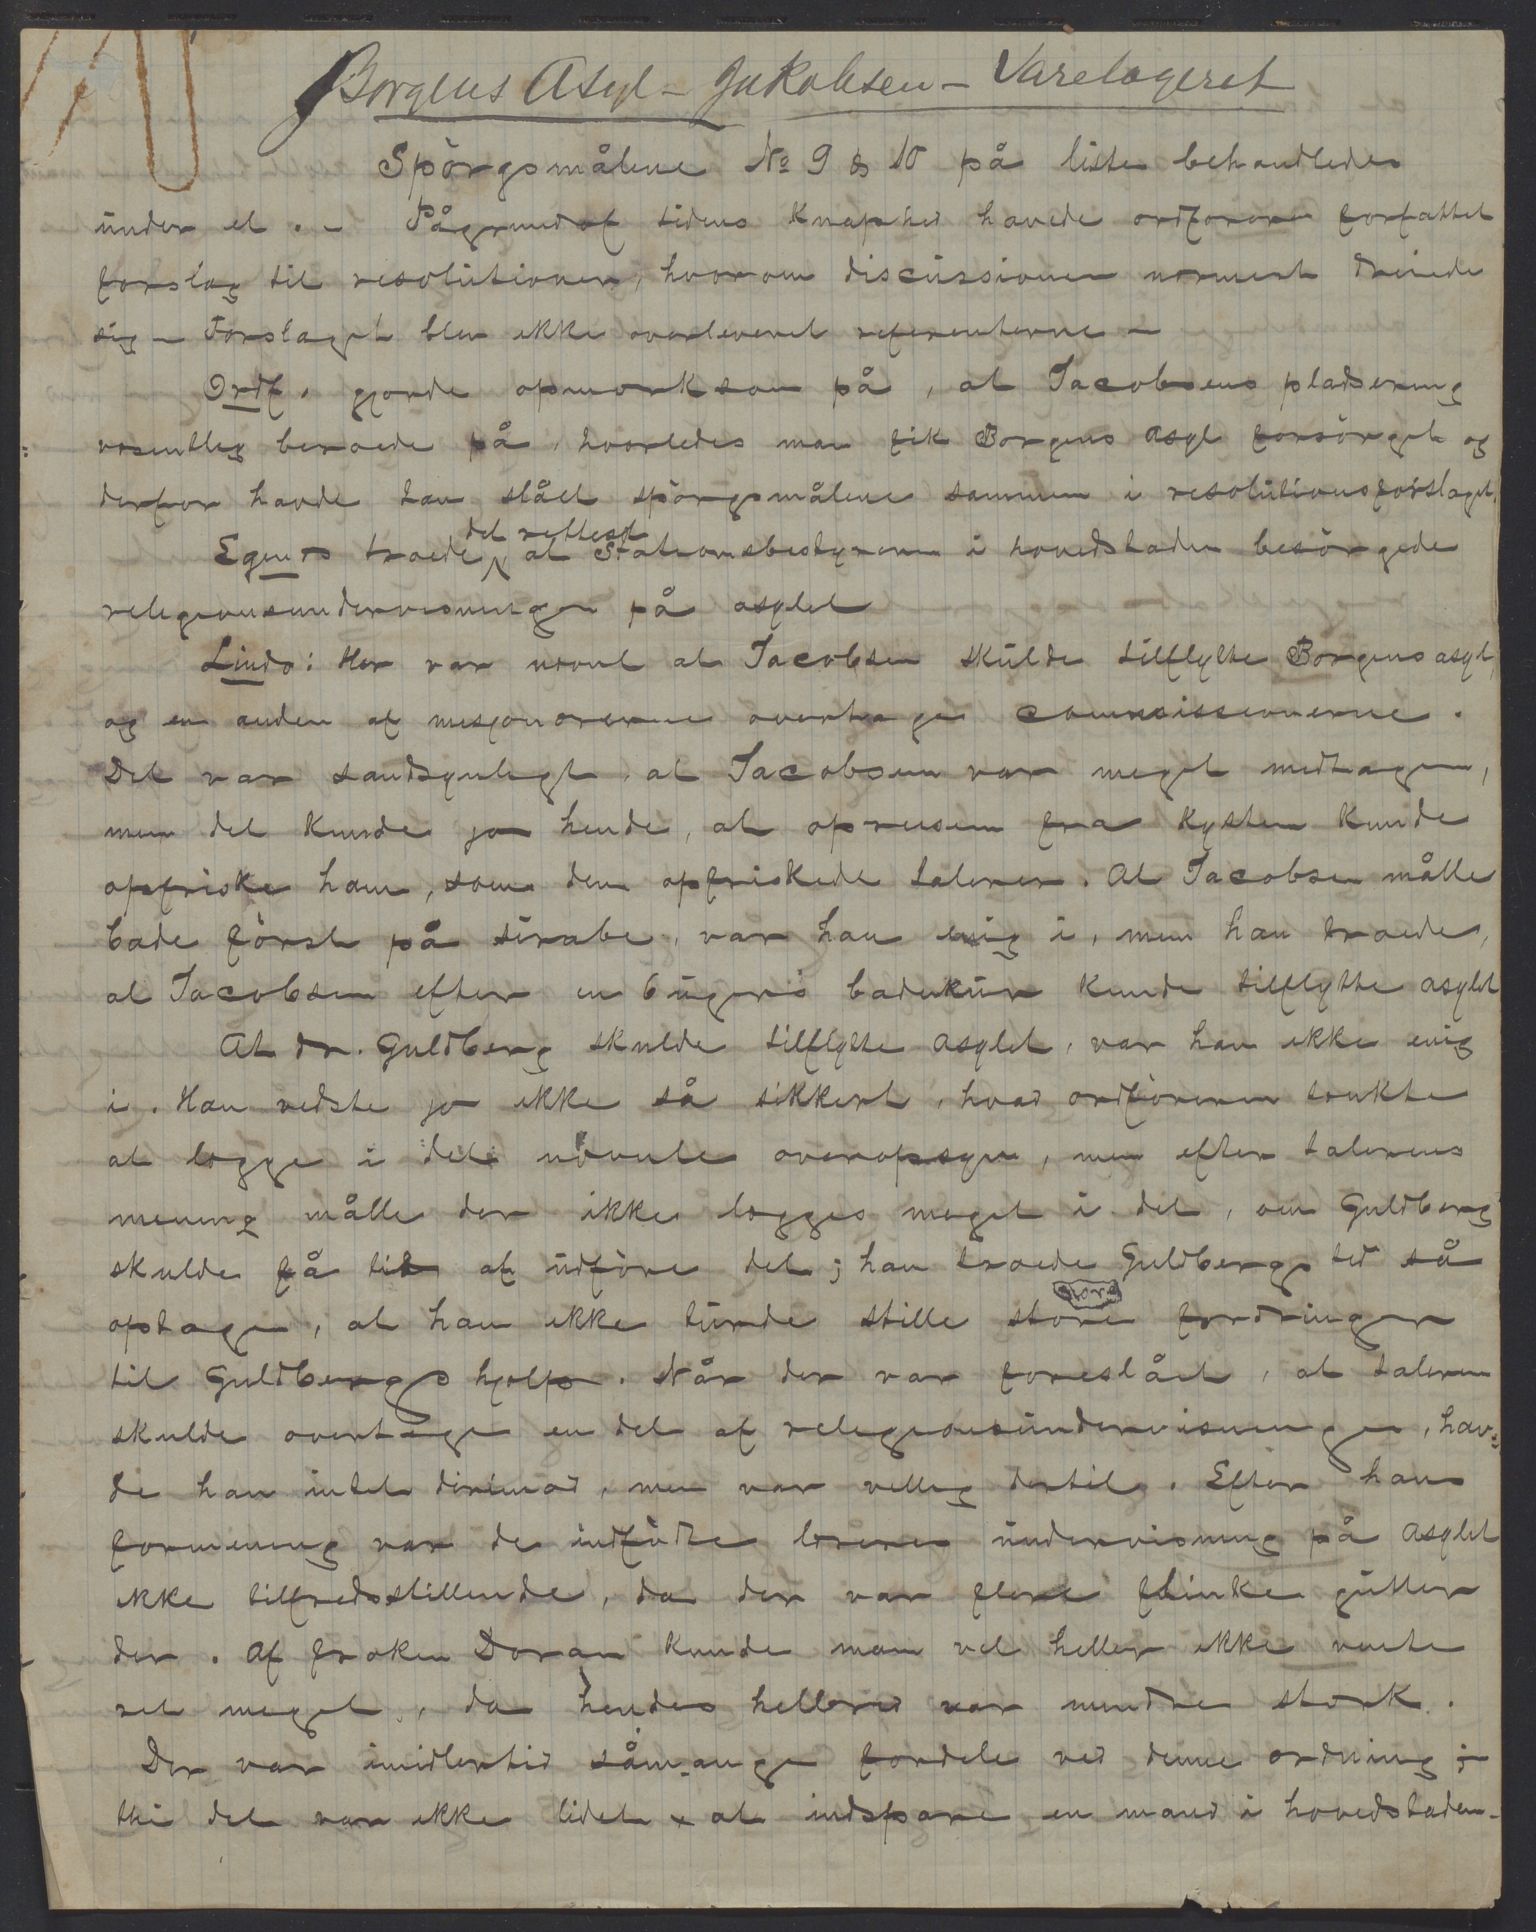 Borgens Asyl - Jakobsen - Varelageret
Spörgsmålene No 9 & 10 på liste behandledes
under et. - Pågrundaf tidens knaphed havede ordförer forfattet
forslag til resolutioner, hvorom discussionen nærmest dreiede
sig - Forslaget blev ikke overleveret referenterne -
Ordf. gjorde opmerksom på, at Jacobsens pladsering
væsentlig beroede på, hvorledes man fik Borgens Asyl forsörget og
derfor havde han slået spörgsmålene sammen i resolutionsforslaget.
det rettest
Egenæs troede, at Stationsbestyreren i hovedstaden besörgede
religionsundervisningen på asylet
Lindo: Her var nævnt at Jacobsen skulde tilflytte Borgens asyl,
og en anden af misjonærerne overtage commissionerne.
Det var sandsynligt, at Jacobsen var meget medtagen,
men det kunde jo hende, at opreisen fra kysten kunde
opfriske ham, som den opfriskede taleren. At Jacobsen måtte
bade först på sirabe, var han enig i, men han troede,
at Jacobsen efter en 6 ugers badekur kunde tilflytte asylet
At dr. Guldberg skulde tilflytte asylet, var han ikke enig
i. Han vidste jo ikke så sikkert, hvad ordföreren tænkte
at lægge i det nævnte overopsyn, men efter talerens
mening måtte der ikke lægges meget i det, om Guldberg
skulde få tid at udföre det; han troede Guldbergs tid så
optagen, at han ikke turde stille store fordringer
til Guldbergs hjælp. Når der var foreslået, at taleren
skulde overtage en del af religionsundervisningen, hav-
de han intet derimod, men var villig dertil. Efter hans
formening var de indfödte læreres undervisning på Asylet
ikke tilfredsstillende, da der var flere flinke gutter
der. Af fröken Doran kunde man vel heller ikke vente
ret meget, da hendes helbred var mindre stærk.
Der var imidlertid såmange fordele ved denne ordning;
thi det var ikke lidet at indspare en mand i hovedstaden-